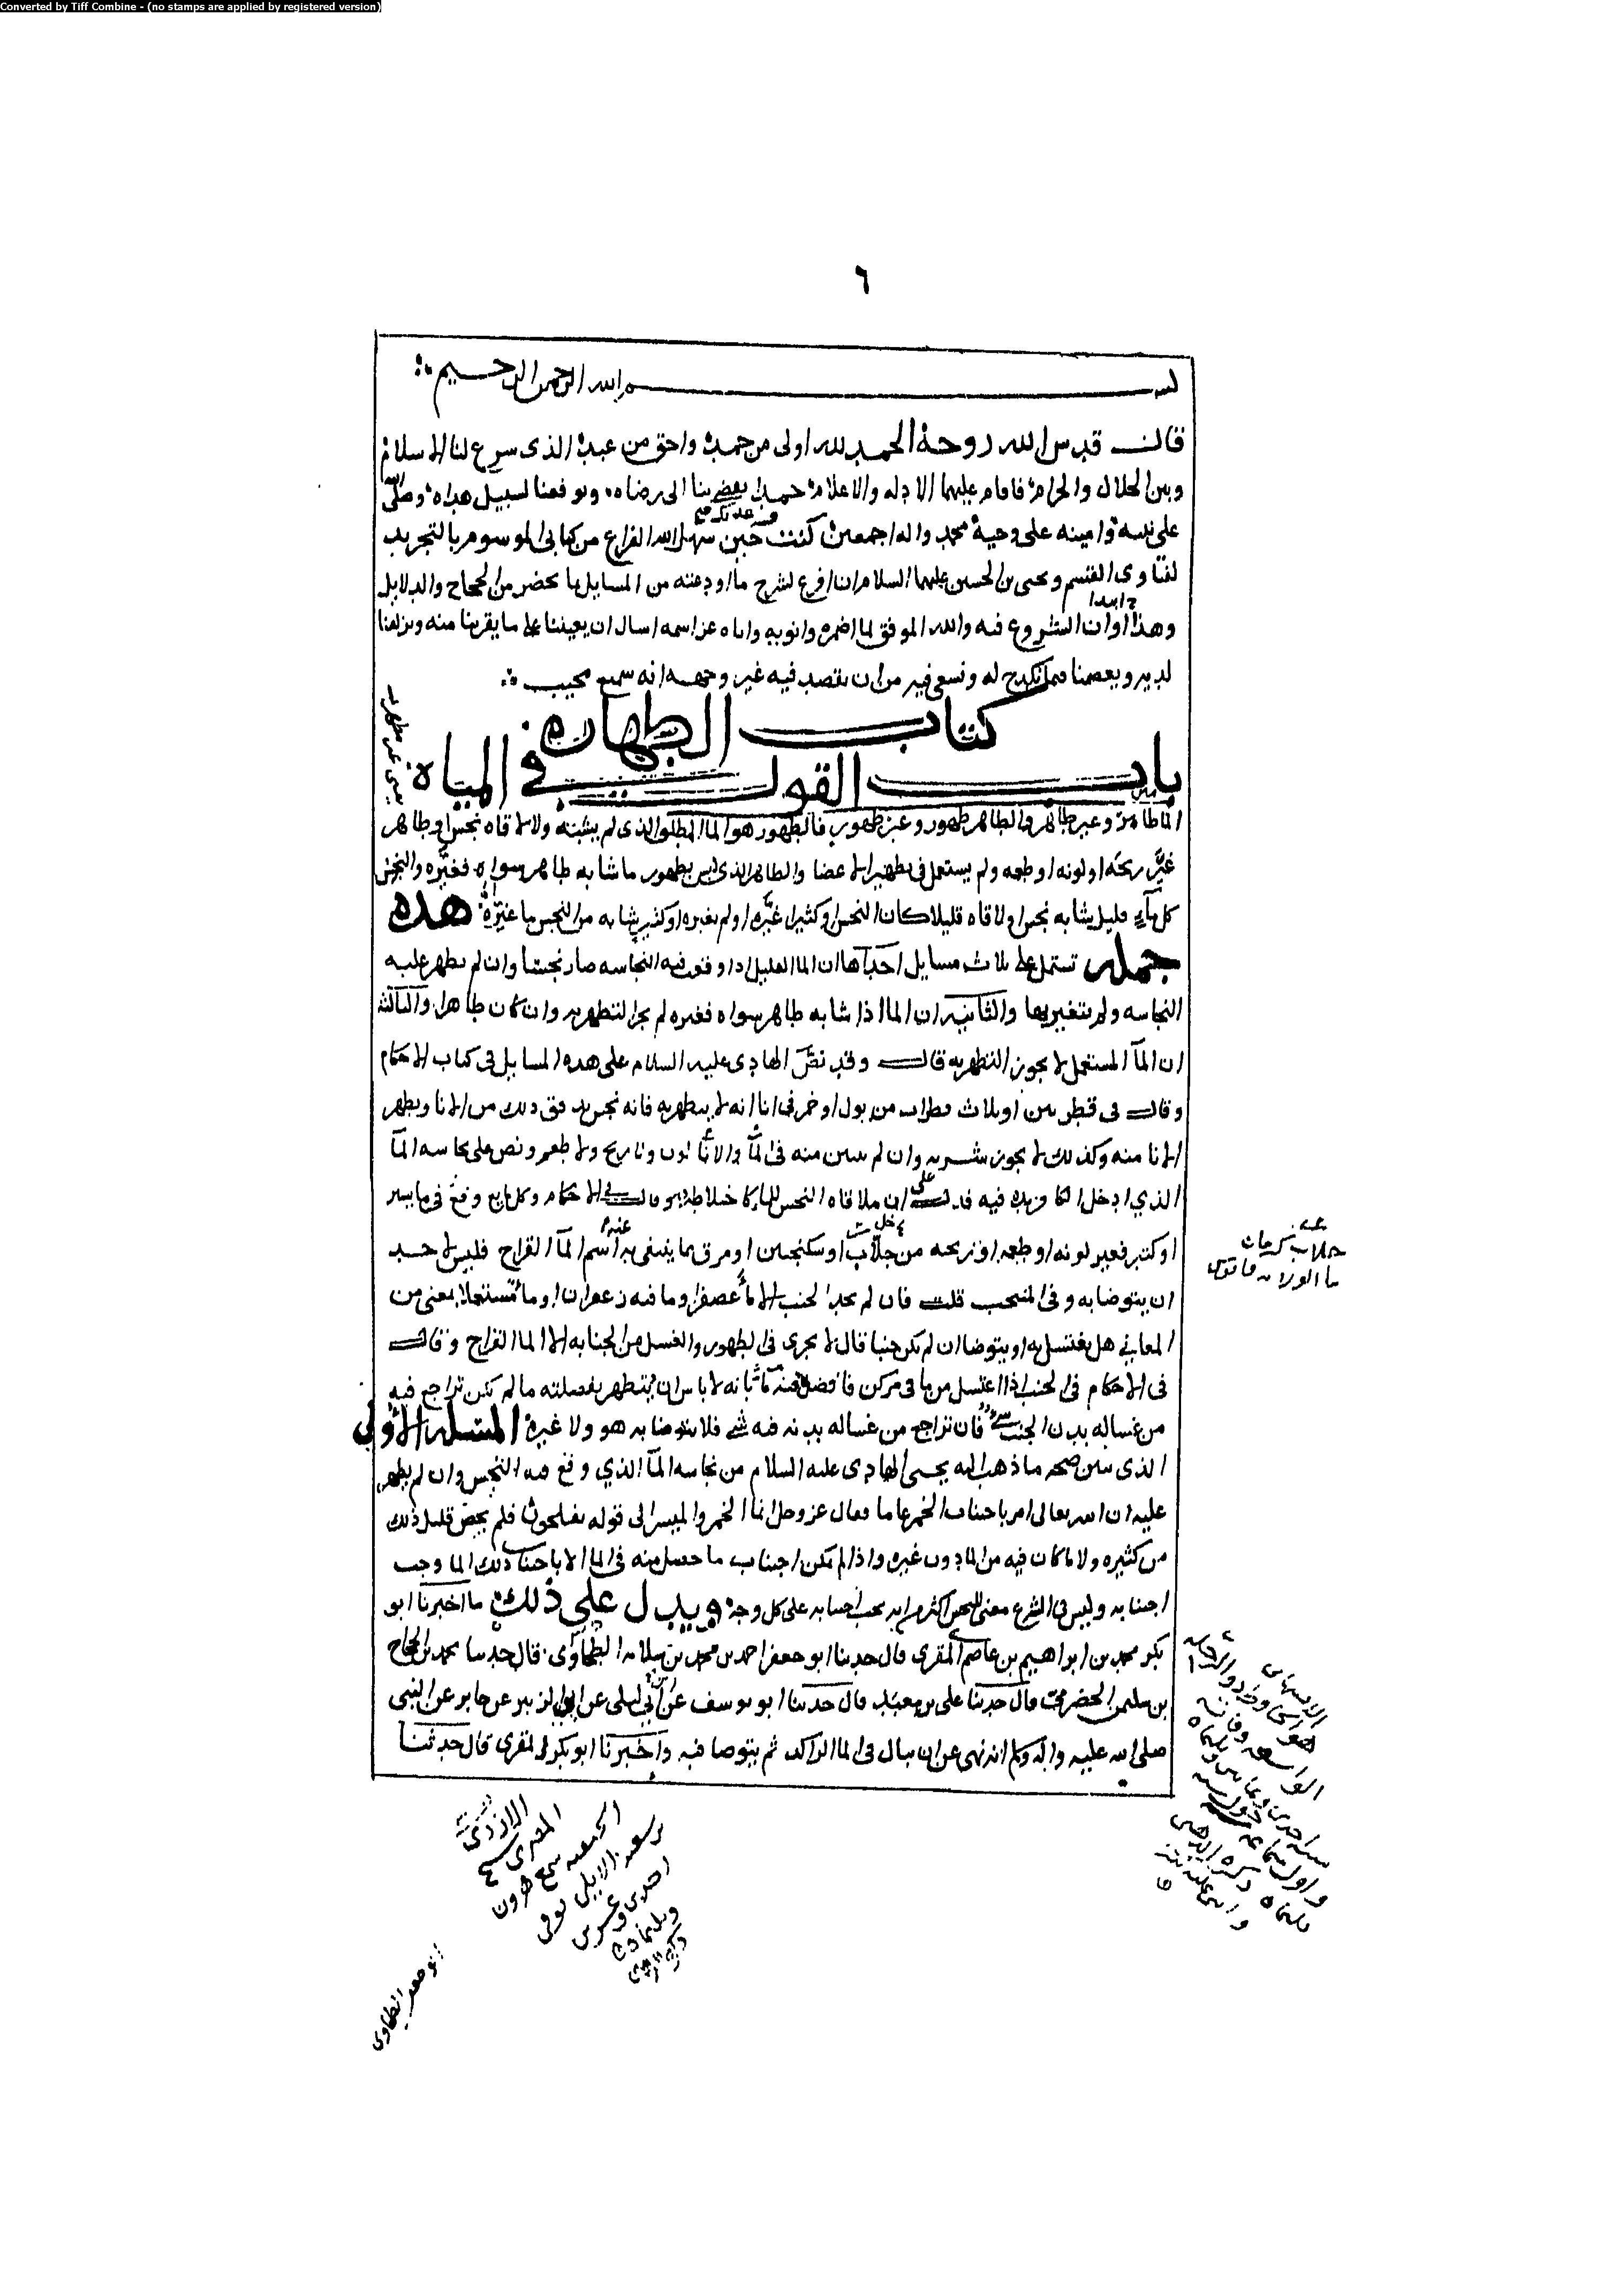 Converted by Tiff Combine - (no stamps are applied by registered version)
٦
بسم الله الرحمن الرحيم
قال قدس الله روحه الحمد لله اولى من حمد واحق من عبد الذى سرع لنا الاسلام
وبين الحلال والحرام فاقام عليهما الادله والاعلام حمدا بنا الى رضاه ويوفقنا لسبيل هداه وصلى الله
على وامينه على وحيه محمد واله اجمعين كنت حين سهل الله الفراغ من كتابى الموسوم بالتجريد
لفتاوى القسم ويحيى بن الحسين عليهما السلام ان افرغ لشرح ما اودعته من المسايل بما يحضر من الحجاج والدلايل
وهذا اوان الشروع فيه والله الموفق لما اضمره وانويه واياه عز اسمه اسال ان يعيننا على ما يقربنا منه ويزلفنا
لديه ويعصمنا فيما نكدح له ونسعى فيه من ان نقصد فيه غير وجهه انه سميع مجيب
كتاب الطهاره
باب القول فى المياه
الما طاهر وغير طاهر والطاهر طهور وغير طهور فالطهور هو الما المطلق الذى لم يشبه ولا لاقاه نجس او طاهر
غيّر ريحه او لونه او طعمه ولم يستعمل فى تطهير الاعضا والطاهر الذى ليس بطهور ما شابه طاهر سواه فغيره والنجس
كل ماء قليل شابه نجس او لاقاه قليلا كان النجس او كثيرا غيّره او لم يغيره او كثير شابه من النجس ما غيّره هذه
جمله تشتمل على ثلاث مسايل احداها ان الما القليل اذا وقعت فيه النجاسه صار نجسا وان لم يظهر عليه
النجاسه ولم يتغير بها والثانيه ان الما اذا شابه طاهر سواه فغيره لم يجز التطهر به وان كان طاهرا والثالثه
ان الما المستعمل لا يجوز التطهر به قال وقد نصّ الهادى عليه السلام على هذه المسايل فى كتاب الاحكام
وقال فى قطرتين او ثلاث قطرات من بول او خمر فى انا انه لا يتطهر به فانه نجس يدفق ذلك من الانا ويطهر
الانا منه وكذلك لا يجوز شربه وان لم يتبين منه فى الما والانا لون ولا ريح ولا طعم ونص على نجاسه الما
الذي ادخل الكافر يده فيه فدل على ان ملاقاه النجس للما كاختلاطه به وقال فى الاحكام وكل مايع وقع فى ما يسير
او كثير فغير لونه او طعمه او ريحه من جلاب او سكنجبين او مرق مما ينتفى به اسم الما القراح فليس لاحد
ان يتوضا به وفى المنتخب قلت فان لم يجد الجنب الا ما عصفر او ما فيه زعفران او ما مستعملا بمعنى من
المعاني هل يغتسل به او يتوضا ان لم يكن جنبا قال لا يجزى فى الطهور والغسل من الجنابه الا الما القراح وقال
فى الاحكام فى الجنب اذا اغتسل من ما فى مركن فافضل منه انه لا باس ان يتطهر بفضلته ما لم يكن تراجع فيه
من غساله بدن الجنب شى فان تراجع من غساله بدنه فيه شى فلا يتوضا به هو ولا غيره المسله الاولى
الذى يبين صحه ما ذهب اليه يحيى الهادى عليه السلام من نجاسه الما الذي وقع فيه النجس وان لم يظهر
عليه ان الله تعالى امر باجتناب الخمر عاما فقال عز وجل انما الخمر والميسر الى قوله تفلحون فلم يخص قليل ذلك
من كثيره ولا ما كان فيه من الما دون غيره واذا لم يكن اجتناب ما حصل منه فى الما الا باجتناب ذلك الما وجب
اجتنابه وليس فى الشرع معنى للنجس اكثر من انه يجب اجتنابه على كل وجه ويدل على ذلك ما اخبرنا ابو
بكر محمد بن ابراهيم بن عاصم المقرى قال حدثنا ابو جعفر احمد بن محمد بن سلامه الطحاوى قال حدثنا محمد بن الحجاج
بن سليمن الحضرمى قال حدثنا على بن معبد قال حدثنا ابو يوسف عن ابن ابي ليلى عن ابى الزبير عن جابر عن النبى
صلى الله عليه واله وسلم انه نهى عن ان يبال فى الما الراكد ثم يتوضا فيه واخبرنا ابو بكر المقرى قال حدثنا
الازدى
المصرى